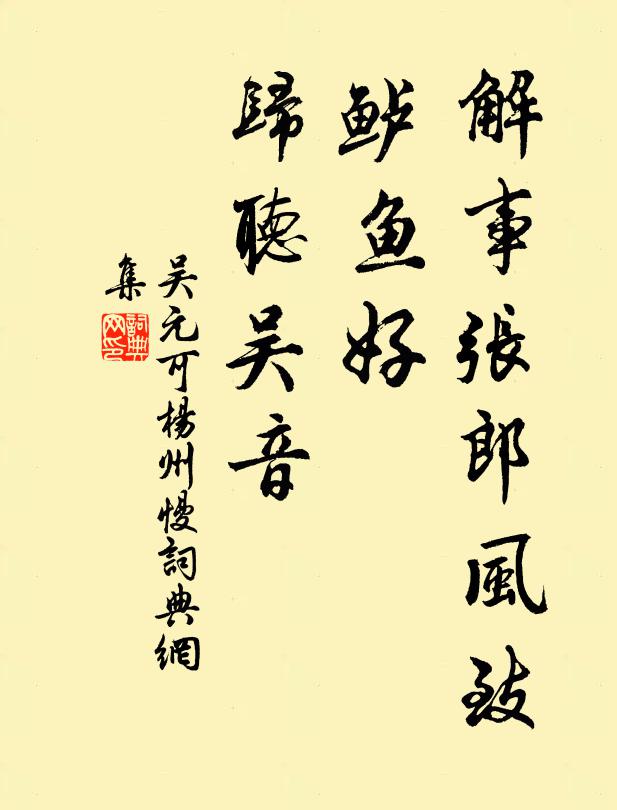 解事張郎風致
鲈鱼好
歸聽吴音
吴元可楊州慢詞典網
集
詞典
网印